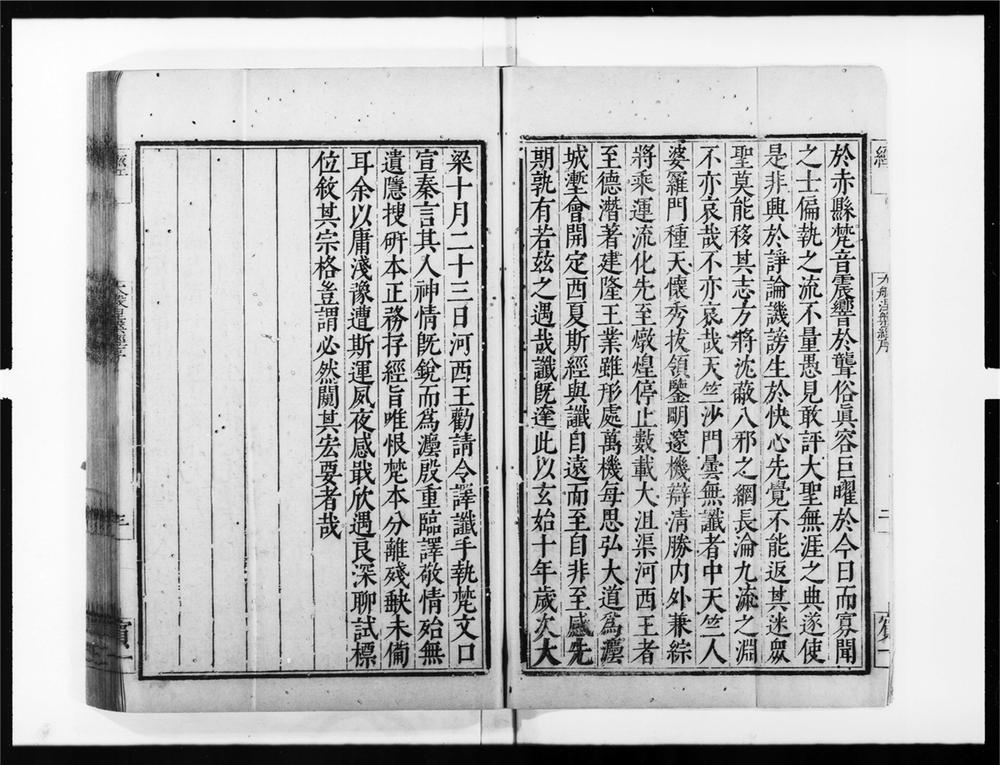 於赤縣梵音震響於聾俗眞容巨曜於今日而寡聞
之士偏執之流不量愚見敢評大聖無涯之典遂使
是非興於諍論譏謗生於快心先覺不能返其迷眾
聖莫能移其志方將沈蔽八邪之網長淪九流之淵
不亦哀哉不亦哀哉天竺沙門曇無讖者中天竺人
婆羅門種天懷秀拔領鑒明邃機辯清勝內外兼綜
將乘運流化先至燉煌停止數載大沮渠河西王者
至德潛著建隆王業雖形處萬機每思弘大道爲灋
城壍會開定西夏斯經與讖自遠而至自非至感先
期孰有若茲之遇哉讖既達此以玄始十年歲次大
梁十月二十三日河西王勸請令譯讖手執梵文口
宣秦言其人神情既銳而爲灋殷重臨譯敬情殆無
遺隱搜研本正務存經旨唯恨梵本分離殘缺未備
耳余以庸淺豫遭斯運夙夜感戢欣遇良深聊試標
位敘其宗格豈謂必然闚其宏要者哉
經
大般涅槃經序
二
賓一
經
大般涅槃經序
三
賓一